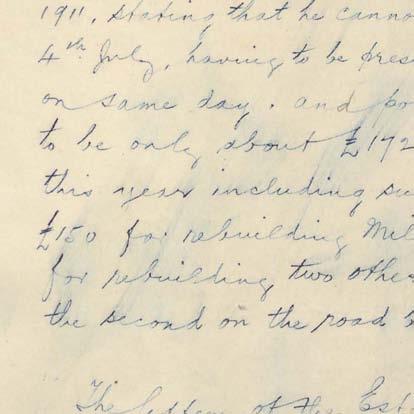 1911, stating that he canno
4th July, having to be pres
on same day. and po
to be only about £172
this year including su
£150 for rebuilding Mel
for rebuilding two othe
the second on the road
The letter of the Es